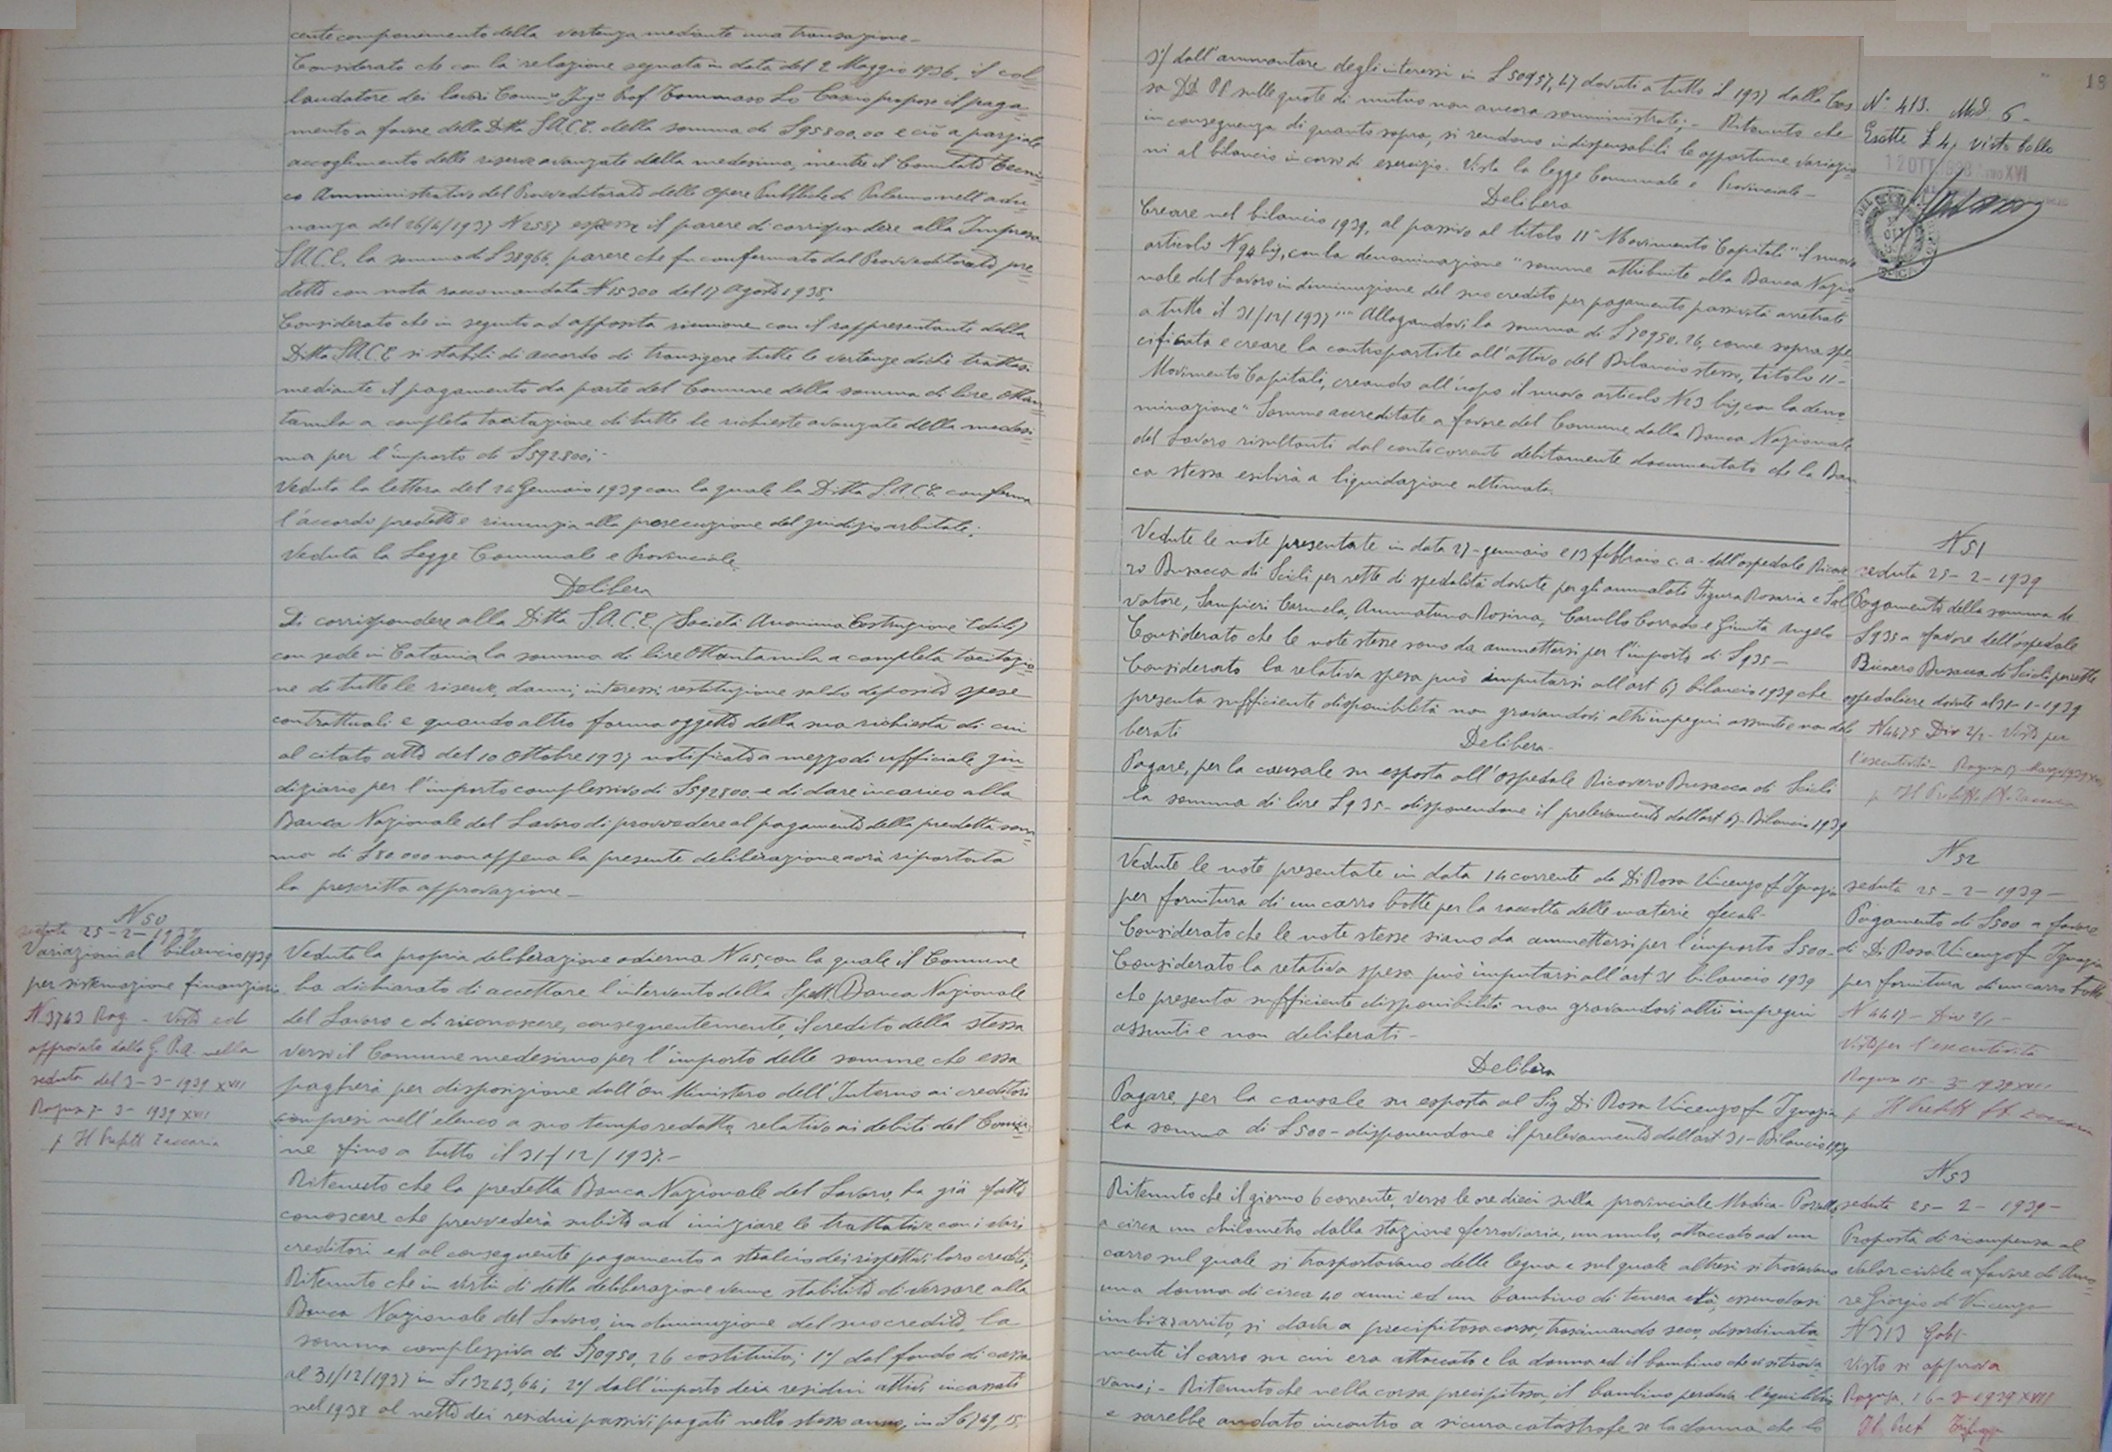 cente componimento della vertenza mediante una transazione -
Considerato che con la relazione segnata in data del 2 Maggio 1936, il col-
laudatore dei lavori Prof. Tommaso Lo Cascio propose il paga-
mento a favore della Ditta S.A.C.E. della somma di £95800,00 e ciò a parziale
accoglimento delle riserve avanzate dalla medesima, mentre il Comitato Tecni-
co Amministrativo del Provveditorato delle Opere Pubbliche di Palermo nell'adu-
nanza del 26/4/1937 N 2557 espresse il parere di corrispondere alla Impresa
S.A.C.E. la somma di £38966, parere che fu confermato dal Provveditorato pre-
detto con nota raccomandata N 15300 del 17 Agosto 1938.
Considerato che in seguito ad apposita riunione con il rappresentante della
Ditta S.A.C.E si stabilì di accordo di transigere tutte le vertenze di che trattasi
mediante il pagamento da parte del Comune della somma di lire ottan-
tamila a completa tacitazione di tutte le richieste avanzate della medesi-
ma per l'importo di £592800; -
Veduta la lettera del 26 Gennaio 1939 con la quale la Ditta S.A.C.E. conferma
l'accordo predetto e rinunzia alla prosecuzione del giudizio arbitale;
Veduta la Legge Comunale e Provinciale
Delibera
Di corrispondere alla Ditta S.A.C.E. (Società Anonima Costruzione Edili)
con sede in Catania la somma di lire Ottantamila a completa tacitazio-
ne di tutte le riserve, danni, interessi, restituzione saldo deposito spese
contrattuali e quando altro forma oggetto della sua richiesta di cui
al citato atto del 10 Ottobre 1937 notificato a mezzo di ufficiale giu-
diziario per l'importo complessivo di £592800. e di dare incarico alla
Banca Nazionale del Lavoro di provvedere al pagamento della predetta som-
ma di £80.000 non appena la presente deliberazione avrà riportata
la prescritta approvazione -
N 50
seduta 25-2-1939
Variazioni al bilancio 1939
per sistemazione finanziaria
N 3743 Rag - Visto ed
approvato dalla G. P. A. nella
seduta del 3-3-1939 XVII
Ragusa 7-3-1939 XVII
p Il Prefetto Zaccaria
Veduta la propria deliberazione odierna N 45, con la quale il Comune
ha dichiarato di accettare l'intervento della Spett. Banca Nazionale
del Lavoro e di riconoscere, conseguentemente, il credito della stessa
verso il Comune medesimo per l'importo delle somme che essa
pagherà per disposizione dall'On Ministero dell'Interno ai creditori
compresi nell'elenco a suo tempo redatto, relativo ai debiti del Comu-
ne fino a tutto il 31/12/1937.-
Ritenuto che la predetta Banca Nazionale del Lavoro, ha già fatto
conoscere che provvederà subito ad iniziare le trattative con i vari
creditori ed al conseguente pagamento a stralcio dei rispettivi loro crediti;
Ritenuto che in virtù di detta deliberazione venne stabilito di versare alla
Banca Nazionale del Lavoro, in diminuzione del suo credito, la
somma complessiva di £70950,26 costituito; 1°/ dal fondo di cassa
al 31/12/1937 in £13243,64; 2°/ dall'importo dei residui attivi incassati
nel 1938 al netto dei residui passivi pagati nello stesso anno, in £6749,15.
18
3°/ dall'ammontare degli interessi in £50957,47 dovuti a tutto il 1937 dalla Cas-
sa DD PP sulle quote di mutuo non ancora somministrate; - Ritenuto che
in conseguenza di quanto sopra, si rendono indispensabili le opportune variazio-
ni al bilancio in corso di esercizio. Vista la legge Comunale e Provinciale -
Delibera
Creare nel bilancio 1939, al passivo al titolo II° Movimento Capitali" il nuovo
articolo N 94 bis, con la denominazione "somme attribuite alla Banca Nazio-
nale del Lavoro in diminuzione del suo credito per pagamento passività arretrate
a tutto il 31/12/1937" Allogandovi la somma di £70950.26, come sopra spe-
cificata e creare la contropartita all'attivo del Bilancio stesso, titolo II-
Movimento Capitali, creando all'uopo il nuovo articolo N 23 bis, con la deno-
minazione "Somme accreditate a favore del Comune dalla Banca Nazionale
del Lavoro risultanti dal conto corrente debitamente documentato che la Ban-
ca stessa esibirà a liquidazione ultimata.
N° 413. Mod. 6 -
Esatte £ 4, visto bollo
12 OTT. 1938 Anno XVI
Vedute le note presentate in data 27-gennaio e 13 febbraio c.a. dell'ospedale Ricove-
ro Busacca di Scicli per rette di spedalità dovute per gli ammalati Figura Rosaria e Sal-
vatore, Sampieri Carmela, Ammatuna Rosina, Carullo Corrado e Giunta Angelo
Considerato che le note stesse sono da ammettersi per l'importo di £935-
Considerato la relativa spesa può imputarsi all'art 67 bilancio 1939 che
presenta sufficiente disponibilità non gravandovi altri impegni assunti e non deli-
berati
Delibera-
Pagare, per la causale su esposta all'Ospedale Ricovero Busacca di Scicli
la somma di lire £935- disponendone il prelevamento dall'art 67- Bilancio 1939
N 51
seduta 25-2-1939
Pagamento della somma di
£935 a favore dell'ospedale
Ricovero Busacca di Scicli per rette
ospedaliere dovute al 31-1-1939
N 4475 Div 2/2 - Visto per
l'esecutività - Ragusa
p Il Prefetto Zaccaria
Vedute le note presentate in data 14 corrente da Di Rosa Vincenzo fu Ignazio
per fornitura di un carro botte per la raccolta delle materie fecali-
Considerato che le note stesse siano da ammettersi per l'importo £500-
Considerato la relativa spesa può imputarsi all'art 31 bilancio 1939
che presenta sufficiente disponibilità non gravandovi altri impegni
assunti e non deliberati -
Delibera
Pagare, per la causale su esposta al Sig Di Rosa Vincenzo fu Ignazio
la somma di £500- disponendone il prelevamento dall'art 31- Bilancio 1939
N 52
seduta 25-2-1939-
Pagamento di £500 a favore
di Di Rosa Vincenzo fu Ignazio
per fornitura di un carro botte
N 4417- Div
Visto per l'esecutività
Ragusa 15-3-1939 XVII
p Il Prefetto Zaccaria
Ritenuto che il giorno 6 corrente, verso le ore dieci sulla provinciale Modica-Pozzallo
a circa un chilometro dalla stazione ferroviaria, un mulo, attaccato ad un
carro sul quale si trasportavano delle legna e sul quale altresì si trovavano
una donna di circa 40 anni ed un bambino di tenera età, essendosi
imbizzarrito, si dava a precipitosa corsa, trascinando seco disordinata-
mente il carro su cui era attaccato e la donna ed il bambino che vi si trova-
vano; - Ritenuto che nella corsa precipitosa, il bambino perdeva l'equilibrio
e sarebbe andato incontro a sicura catastrofe se la donna che lo
N 53
seduta 25-2-1939-
Proposta di ricompensa al
valor civile a favore di
re Giorgio di Vincenzo
N 313 Gab-
Visto si approva
Ragusa, 16-3-1939 XVII
Il Pref